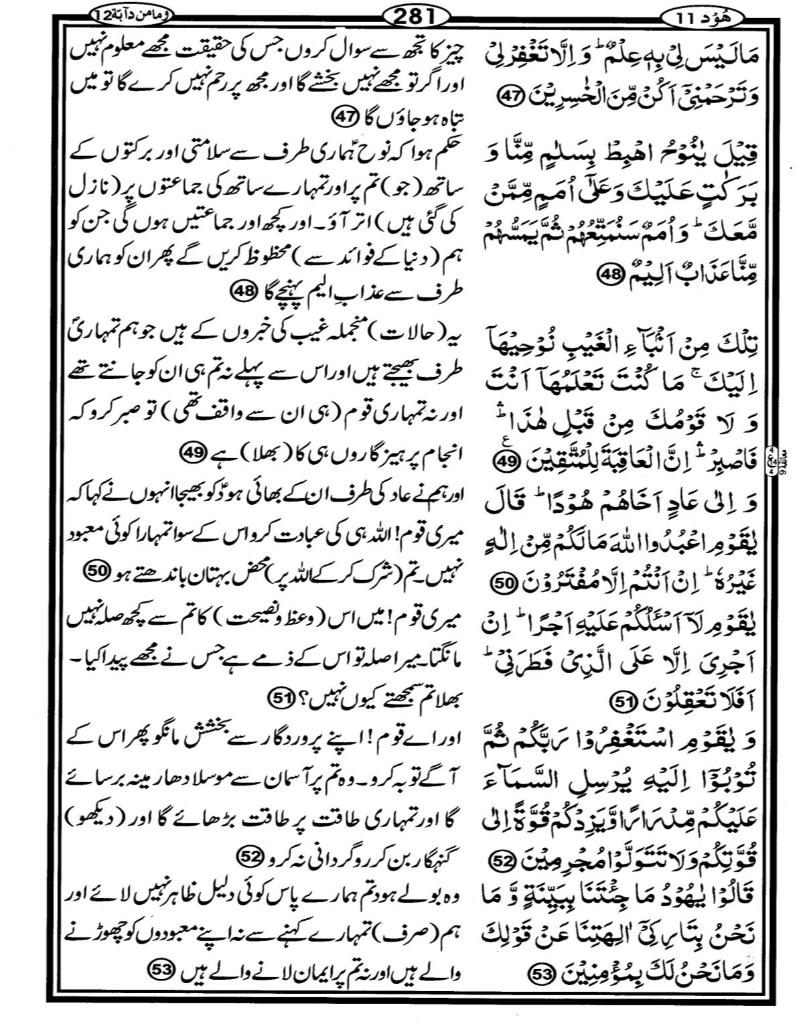 هُوْد 11
281
وَمَا مِنْ دَآبَّة 12
مَا لَيْسَ لِىْ بِهٖ عِلْمٌ ؕ وَ اِلَّا تَغْفِرْ لِىْ
وَ تَرْحَمْنِىْۤ اَكُنْ مِّنَ الْخٰسِرِيْنَ 47
قِيْلَ يٰنُوْحُ اهْبِطْ بِسَلٰمٍ مِّنَّا وَ
بَرَكٰتٍ عَلَيْكَ وَ عَلٰٓى اُمَمٍ مِّمَّنْ
مَّعَكَ ؕ وَ اُمَمٌ سَنُمَتِّعُهُمْ ثُمَّ يَمَسُّهُمْ
مِّنَّا عَذَابٌ اَلِيْمٌ 48
تِلْكَ مِنْ اَنْۢبَآءِ الْغَيْبِ نُوْحِيْهَاۤ
اِلَيْكَ ۚ مَا كُنْتَ تَعْلَمُهَاۤ اَنْتَ
وَ لَا قَوْمُكَ مِنْ قَبْلِ هٰذَا ۛؕ
فَاصْبِرْ ۛؕ اِنَّ الْعَاقِبَةَ لِلْمُتَّقِيْنَ 49 ع
وَ اِلٰى عَادٍ اَخَاهُمْ هُوْدًا ؕ قَالَ
يٰقَوْمِ اعْبُدُوا اللّٰهَ مَا لَكُمْ مِّنْ اِلٰهٍ
غَيْرُهٗ ؕ اِنْ اَنْتُمْ اِلَّا مُفْتَرُوْنَ 50
يٰقَوْمِ لَاۤ اَسْئَلُكُمْ عَلَيْهِ اَجْرًا ؕ اِنْ
اَجْرِىَ اِلَّا عَلَى الَّذِىْ فَطَرَنِىْ ؕ
اَفَلَا تَعْقِلُوْنَ 51
وَ يٰقَوْمِ اسْتَغْفِرُوْا رَبَّكُمْ ثُمَّ
تُوْبُوْۤا اِلَيْهِ يُرْسِلِ السَّمَآءَ
عَلَيْكُمْ مِّدْرَارًا وَّ يَزِدْكُمْ قُوَّةً اِلٰى
قُوَّتِكُمْ وَ لَا تَتَوَلَّوْا مُجْرِمِيْنَ 52
قَالُوْا يٰهُوْدُ مَا جِئْتَنَا بِبَيِّنَةٍ وَّ مَا
نَحْنُ بِتَارِكِىْۤ اٰلِهَتِنَا عَنْ قَوْلِكَ
وَ مَا نَحْنُ لَكَ بِمُؤْمِنِيْنَ 53
چیز کا تجھ سے سوال کروں جس کی حقیقت مجھے معلوم نہیں
اور اگر تو مجھے نہیں بخشے گا اور مجھ پر رحم نہیں کرے گا تو میں
تباہ ہو جاؤں گا 47
حکم ہوا کہ نوحؑ ہماری طرف سے سلامتی اور برکتوں کے
ساتھ (جو) تم پر اور تمہارے ساتھ کی جماعتوں پر (نازل
کی گئی ہیں) اتر آؤ۔ اور کچھ اور جماعتیں ہوں گی جن کو
ہم (دنیا کے فوائد سے) محظوظ کریں گے پھر ان کو ہماری
طرف سے عذاب الیم پہنچے گا 48
یہ (حالات) منجملہ غیب کی خبروں کے ہیں جو ہم تمہاری
طرف بھیجتے ہیں اور اس سے پہلے نہ تم ہی ان کو جانتے تھے
اور نہ تمہاری قوم (ہی ان سے واقف تھی) تو صبر کرو کہ
انجام پرہیزگاروں ہی کا (بھلا) ہے 49
اور ہم نے عاد کی طرف ان کے بھائی ہودؑ کو بھیجا انہوں نے کہا کہ
میری قوم! اللہ ہی کی عبادت کرو اس کے سوا تمہارا کوئی معبود
نہیں۔ تم (شرک کر کے اللہ پر) محض بہتان باندھتے ہو 50
میری قوم! میں اس (وعظ و نصیحت) کا تم سے کچھ صلہ نہیں
مانگتا۔ میرا صلہ تو اس کے ذمے ہے جس نے مجھے پیدا کیا۔
بھلا تم سمجھتے کیوں نہیں؟ 51
اور اے قوم! اپنے پروردگار سے بخشش مانگو پھر اس کے
آگے توبہ کرو۔ وہ تم پر آسمان سے موسلادھار مینہ برسائے
گا اور تمہاری طاقت پر طاقت بڑھائے گا اور (دیکھو)
گنہگار بن کر روگردانی نہ کرو 52
وہ بولے ہود تم ہمارے پاس کوئی دلیل ظاہر نہیں لائے اور
ہم (صرف) تمہارے کہنے سے نہ اپنے معبودوں کو چھوڑنے
والے ہیں اور نہ تم پر ایمان لانے والے ہیں 53